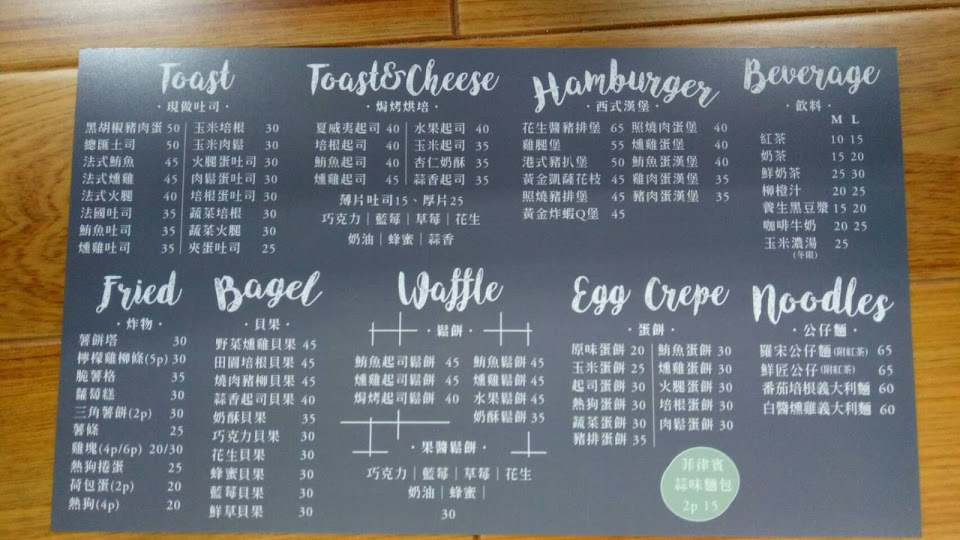 Toast
·現做吐司·
黑胡椒豬肉蛋 50 玉米培根 30
總匯土司 50 玉米肉鬆 30
法式鮪魚 45 火腿蛋吐司 30
法式燻雞 45 肉鬆蛋吐司 30
法式火腿 40 培根蛋吐司 30
法國吐司 35 蔬菜培根 30
鮪魚吐司 35 蔬菜火腿 30
燻雞吐司 35 夾蛋吐司 25
Toast&Cheese
·焗烤烘培·
夏威夷起司 40 水果起司 40
培根起司 40 玉米起司 35
鮪魚起司 40 杏仁奶酥 35
燻雞起司 40 蒜香起司 35
薄片吐司15、厚片25
巧克力|藍莓|草莓|花生
奶油|蜂蜜|蒜香
Hamburger
·西式漢堡·
花生醬豬排堡 65 照燒肉蛋堡 40
雞腿堡 55 燻雞蛋堡 40
港式豬扒堡 50 鮪魚蛋漢堡 40
黃金凱薩花枝 45 雞肉蛋漢堡 35
照燒豬排堡 45 豬肉蛋漢堡 35
黃金炸蝦Q堡 45
Beverage
·飲料·
M L
紅茶 10 15
奶茶 15 20
鮮奶茶 25 30
柳橙汁 20 25
養生黑豆漿 15 20
咖啡牛奶 20 25
玉米濃湯 25
(冬限)
Fried
·炸物·
薯餅塔 30
檸檬雞柳條(5p) 30
脆薯格 35
蘿蔔糕 30
三角薯餅(2p) 30
薯條 25
雞塊(4p/6p) 20/30
熱狗捲蛋 25
荷包蛋(2p) 20
熱狗(4p) 20
Bagel
·貝果·
野菜燻雞貝果 45
田園培根貝果 45
燒肉豬柳貝果 45
蒜香起司貝果 40
奶酥貝果 35
巧克力貝果 30
花生貝果 30
蜂蜜貝果 30
藍莓貝果 30
鮮草貝果 30
Waffle
·鬆餅·
鮪魚起司鬆餅 45 鮪魚鬆餅 45
燻雞起司鬆餅 45 燻雞鬆餅 45
焗烤起司鬆餅 40 水果鬆餅 45
奶酥鬆餅 35
·果醬鬆餅·
巧克力|藍莓|草莓|花生
奶油|蜂蜜|
30
Egg Crepe
·蛋餅·
原味蛋餅 20 鮪魚蛋餅 30
玉米蛋餅 25 燻雞蛋餅 30
起司蛋餅 30 火腿蛋餅 30
熱狗蛋餅 30 培根蛋餅 30
蔬菜蛋餅 30 肉鬆蛋餅 30
豬排蛋餅 35
菲律賓
蒜味麵包
2p 15
Noodles
·公仔麵·
羅宋公仔麵(附紅茶) 65
鮮匠公仔(附紅茶) 65
番茄培根義大利麵 60
白醬燻雞義大利麵 60